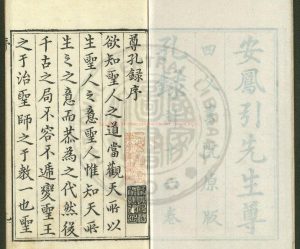 安鳳引先生尊
孔錄 卷
四 原版
尊孔錄序
欲知聖人之道當觀天所以
生聖人之意聖人惟知天所
生〻之意而恭為之代然後
千古之局不容不遞變聖王
之于治聖師之于教一也聖